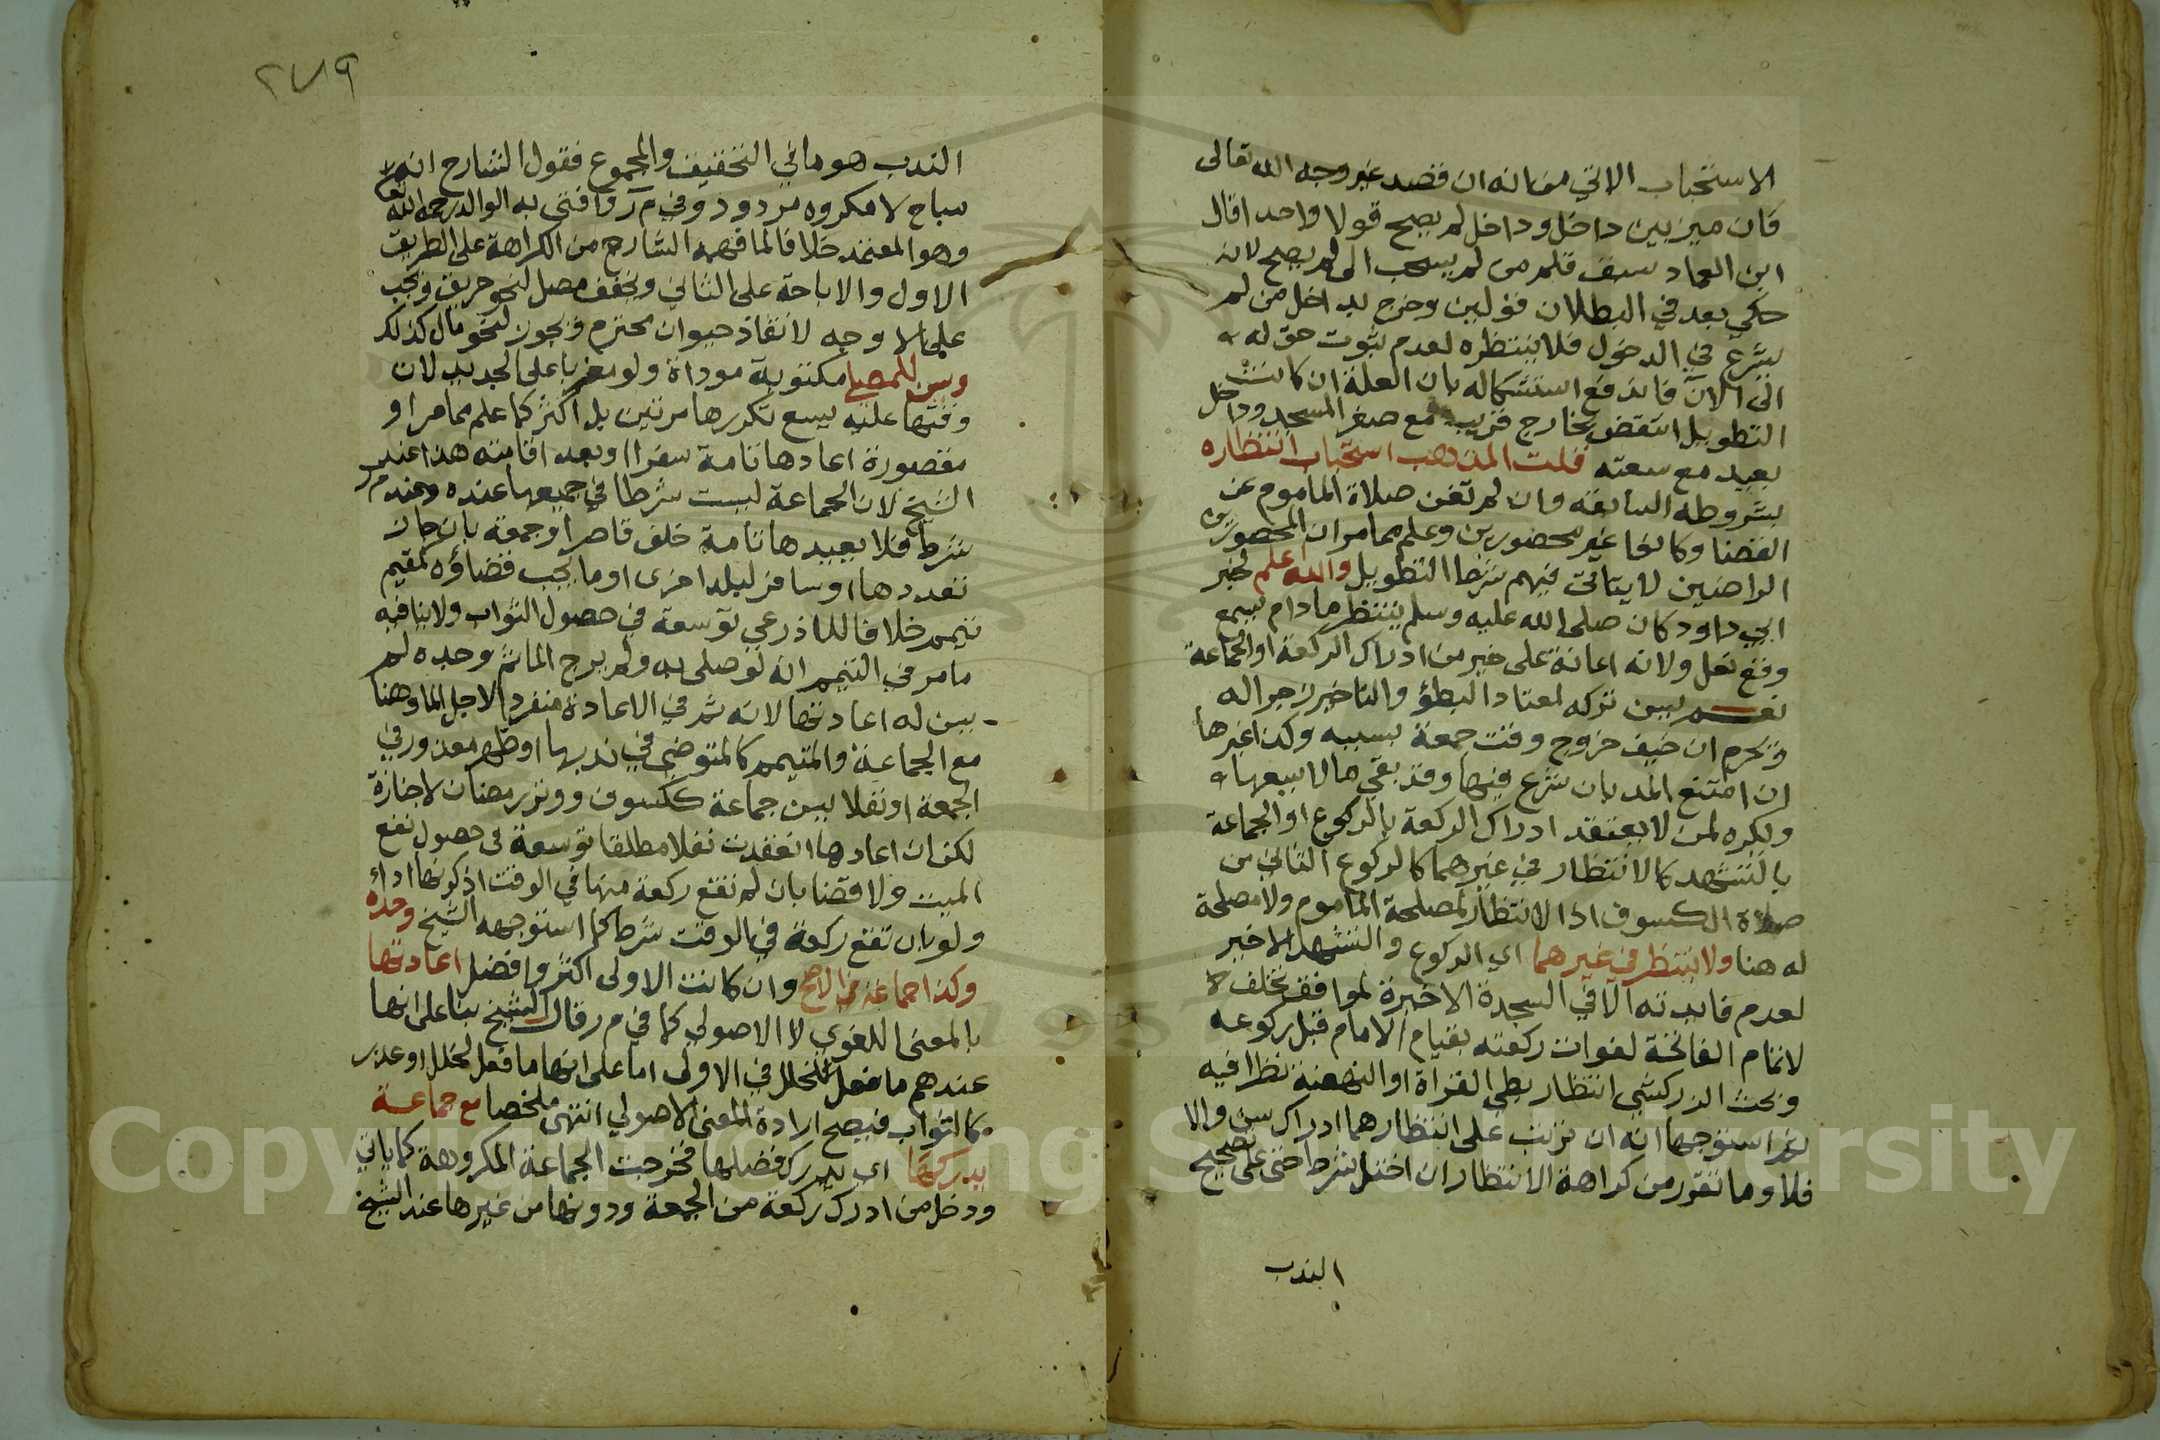 الاستحباب الاتي من انه ان قصد غير وجه الله تعالى
فان ميز بين داخل وداخل لم يصح قولا واحدا قال
ابن العماد سبق قلم من لم يستحب الى لم يصح لانه
حكي بعد في البطلان قولين وخرج بداخل من لم
يشرع في الدخول فلا ينتظره لعدم ثبوت حق له
الى الآن فاندفع استشكاله بان العلة ان كانت
التطويل انتقض بخارج قريب مع صغر المسجد وداخل
بعيد مع سعته قلت المذهب استحباب انتظاره
بشروطه السابقة وان لم تغن صلاة الماموم عن
القضا وكانوا غير محصورين وعلم مما مر ان المحصورين
الراضين لا يتاتى فيهم شرط التطويل والله اعلم لخبر
ابي داود كان صلى الله عليه وسلم ينتظر ما دام يسمع
وقع نعل ولانه اعانة على خير من ادراك الركعة او الجماعة
نعم يسن تركه لمعتاد البطؤ والتاخير زجرا له
ويحرم ان خيف خروج وقت جمعة بسببه وكذا غيرها
ان امتنع المد بان شرع فيها وقد بقي ما لا يسعها
ويكره لمن لا يعتقد ادراك الركعة بالركوع او الجماعة
بالتشهد كالانتظار في غيرهما كالركوع الثاني من
صلاة الكسوف اذ الانتظار لمصلحة الماموم ولا مصلحة
له هنا ولا ينتظر في غيرهما اي الركوع والتشهد الاخير
لعدم فائدته الا في السجدة الاخيرة لموافق تخلف
لاتمام الفاتحة لفوات ركعته بقيام الامام قبل ركوعه
وبحث الزركشي انتظار بطي القراة او النهضة نظرا فيه
ثم استوجها انه ان ترتب على انتظارهما ادراك سن والا
فلا وما تقرر من كراهة الانتظار ان اختل شرط حتى على تصحيح
الندب
٢٧٩
الندب هو ما في التحقيق والمجموع فقول الشارح انه
مباح لا مكروه مردود وفي م ر وافتى به الوالد رحمه الله
وهو المعتمد خلافا لما فهمه الشارح من الكراهة على الطريق
الاول والاباحة على الثاني ويخفف مصل لنحو حريق ويجب
على الاوجه لانقاذ حيوان محترم ويجوز لنحو مال كذلك
وسن للمصلي مكتوبة موداة ولو مغربا على الجديد لان
وقتها عليه يسع تكررها مرتين بل اكثر كما علم مما مر او
مقصورة اعادها تامة سفرا او بعد اقامته هذا عند
الشيخ لان الجماعة ليست شرطا في جميعها عنده وعند م ر
شرط فلا يعيدها تامة خلف قاصر او جمعة بان جاز
تعددها او سافر لبلد اخرى او ما يجب قضاؤه لمقيم
تيمم خلافا للاذرعي توسعة في حصول الثواب ولا ينافيه
ما مر في التيمم انه لو صلى به ولم يرج الما ثم وجده لم
يسن له اعادتها لانه ثم في الاعادة منفردا لاجل الما وهنا
مع الجماعة والمتيمم كالمتوضي في ندبها او ظهر معذور في
الجمعة او نفلا يسن جماعة ككسوف ووتر رمضان لا جنازة
لكن ان اعادها انعقدت نفلا مطلقا توسعة في حصول نفع
الميت ولا قضا بان لم تقع ركعة منها في الوقت اذ كونها اداء
ولو بان تقع ركعة في الوقت شرط كما استوجهه الشيخ وحده
وكذا جماعة في الاصح وان كانت الاولى اكثر وافضل اعادتها
بالمعنى اللغوي لا الاصولي كما في م ر قال الشيخ بنا على انها
عندهم ما فعل لخلل في الاولى اما على انها ما فعل لخلل او عذر
كالثواب فيصح ارادة المعنى الاصولي انتهى ملخصا مع جماعة
يدركها اي يدرك فضلها فخرجت الجماعة المكروهة كما ياتي
ودخل من ادرك ركعة من الجمعة ودونها من غيرها عند الشيخ
Copyright © King Saud University
195